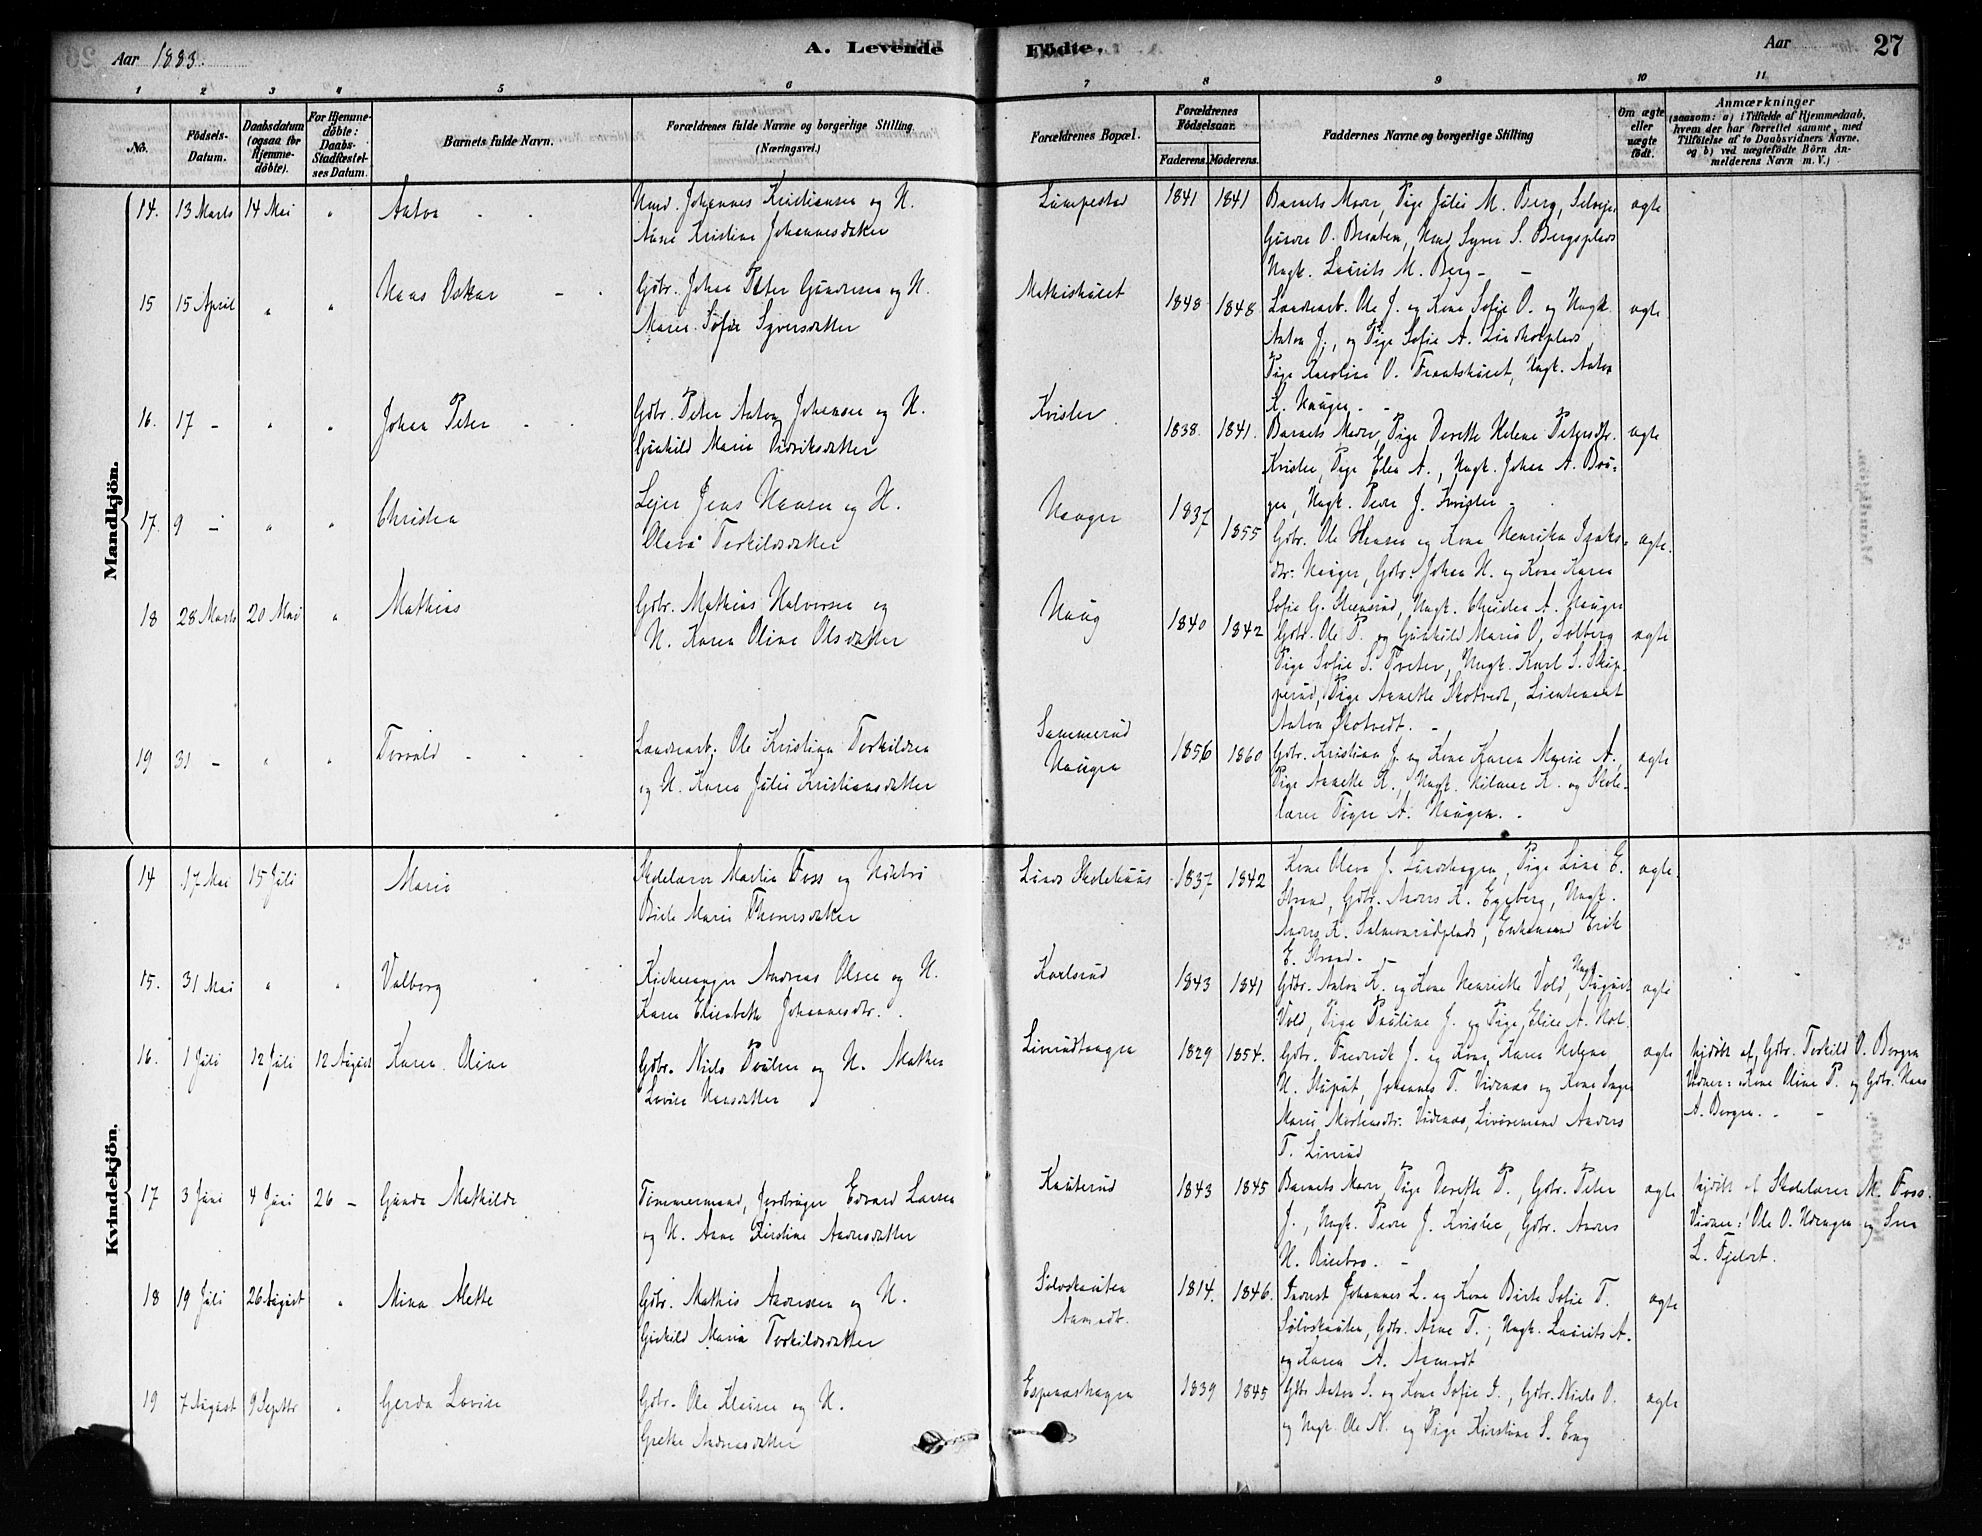 Aar 1883.
A. Levende Födte.
Aar
27
1 2 3 4 5 6 7 8 9 10 11
No.
Födsels-Datum.
Daabsdatum (ogsaa for Hjemme-døbte).
For Hjemme-døbte: Daabs-Stadfæstel-ses Datum.
Barnets fulde Navn.
Forældrenes fulde Navne og borgerlige Stilling. (Næringsvei.)
Forældrenes Bopæl.
Forældrenes Födselsaar.
Faderens. Moderens.
Faddernes Navne og borgerlige Stilling
Om ægte eller uægte födt.
Anmærkninger
(saasom: a) i Tilfælde af Hjemmedaab, hvem der har forrettet samme, med Tilföielse af to Daabsvidners Navne, og b) ved uægtefödte Börn Anmelderens Navn m. V.)
Mandkjön.
14. 13 Marts 14 Mai " Anton
Johannes Kristiansen og H.
Anne Kristine Johannesdatter
1841 1841 Barnets Moder, Pige Julie M. Berg,
O. Braaten, Syver S. Bergsplads
Ungk. Laurits M. Berg
ægte
15 15 April " " Hans Oskar
Gdbr. Johan Peter Gundersen og H.
Maren Sofie Syversdatter
1848 1848 Ole J. og Kone Sofie O. og Ungk.
Anton J., og Pige Sofie A.
Pige Karoline O. Ungk. Anton
K. Haugen
ægte
16. 17 - " " Johan Peter
Gdbr. Peter Anton Johansen og H.
Gunhild Marie Didriksdatter
Kvisler
1838. 1841. Barnets Moder, Pige Dorette Helene Petersdtr.
Kvisler, Pige Elen A., Ungk. Johan A. Bru-
gen, Ungk. Peder J. Kvisler
ægte
17. 9 - " " Christen
Lejer Jens Hansen og H.
Olava Torkildsdatter
Haugen
1837 1855 Gdbr. Ole Hansen og Kone Henrikka Isaks-
dtr. Haugen, Gdbr. Johan H. og Kone Karen
Sofie G. Ungk. Christen A. Haugen
ægte.
18 28 Marts 20 Mai " Mathias
Gdbr. Mathias Halvorsen og
H. Karen Oline Olsdatter
Haug
1840 1842 Gdbr. Ole P. og Gunhild Marie O. Solberg
Pige Sofie S. Ungk. Karl S. Skip-
perud, Pige Annette Skotvedt, Lieutenant
Anton Skotvedt.
ægte
19 31 - " " Torvald
Ole Kristian Torkildsen
og H. Karen Julie Kristiansdatter
Sammerud
Haugen
1856 1860 Gdbr. Kristian J. og Kone Karen Marie A.
Pige Annette K., Ungk. Hilmar K. og Skole-
lærer A. Haugen.
ægte
Kvindekjön.
14 17 Mai 15 Juli Marie
Skolelærer Martin Foss og Hustru
Birte Marie Thomasdatter
Linds Skolehuus
1837 1842 Kone Olava J. Lindhagen, Pige Line E.
Strand, Gdbr. Anders K. Egeberg, Ungk.
Anders K. Salmonrudplads, Enkemand Erik
E. Strand.
ægte.
15. 31 Mai " " Valborg
Kirkesanger Andreas Olsen og H.
Karen Elisabeth Johannesdtr.
Karlsrud
1843 1841 Gdbr. Anton K. og Kone Henriette Vold, Ungk. August
Vold, Pige Pauline J. og Pige Elise A. Hol.
ægte
16. 1 Juli 12 Juli 12 August Karen Oline
Gdbr. Niels Paulsen og H. Mathea
Lovise Hansdatter
1829 1854. Gdbr. Fredrik J. og Kone Karen Helene
H. Johannes T. Videnæs og Kone Inger
Marie Mortensdtr. Videnæs, Anders
T. Linrud
ægte
hjdøbt af Gdbr. Torkild O. Bergan
Vidner: Kone Oline P. og Gdbr. Hans
A. Bergan.
17 3 Juni 4 Juni 26 - Gunda Mathilde
Tømmermand, Jordbruger Edvard Larsen
og H. Anne Kirstine Andersdatter
Knuterud
1843 1845 Barnets Moder, Pige Dorette P., Gdbr. Peter
J., Ungk. Peder J. Kvisler, Gdbr. Anders
H.
ægte
hjdøbt af Skolelærer M. Foss.
Vidner: Ole O. og
L. Fjeldet.
18 19 Juli 26 August " Mina Mette
Gdbr. Mathis Andersen og H.
Gunhild Maria Torkildsdatter
Aamodt.
1814. 1846. Inderst Johannes L. og Kone Birte Sofie T.
Gdbr. Arne T., Ungk. Laurits A.
og Karen A. Aamodt
ægte
19 7 August 9 Septbr " Gerda Lovise
Gdbr. Ole Klausen og H.
Grethe Andreasdatter
Espenshagen
1839 1845 Gdbr Anton S. og Kone Sofie I., Gdbr. Niels O.
og Ungk. Ole N. og Pige Kirstine S. Eng
ægte